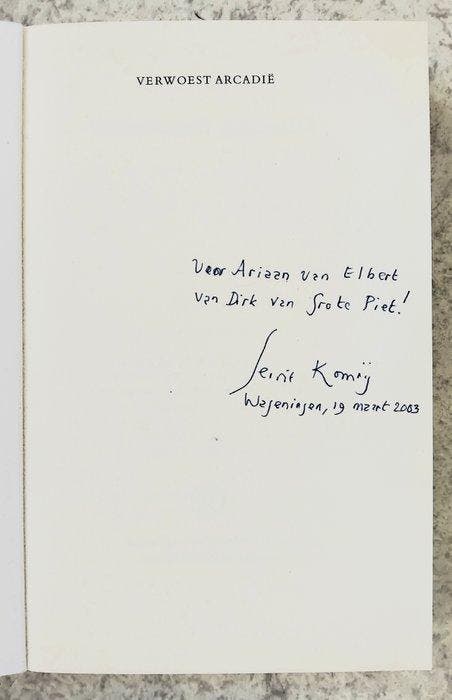 VERWOEST ARCADIË
Voor Ariaan van Elbert
van Dirk van Grote Piet!
Gerrit Komrij
Wageningen, 19 maart 2003